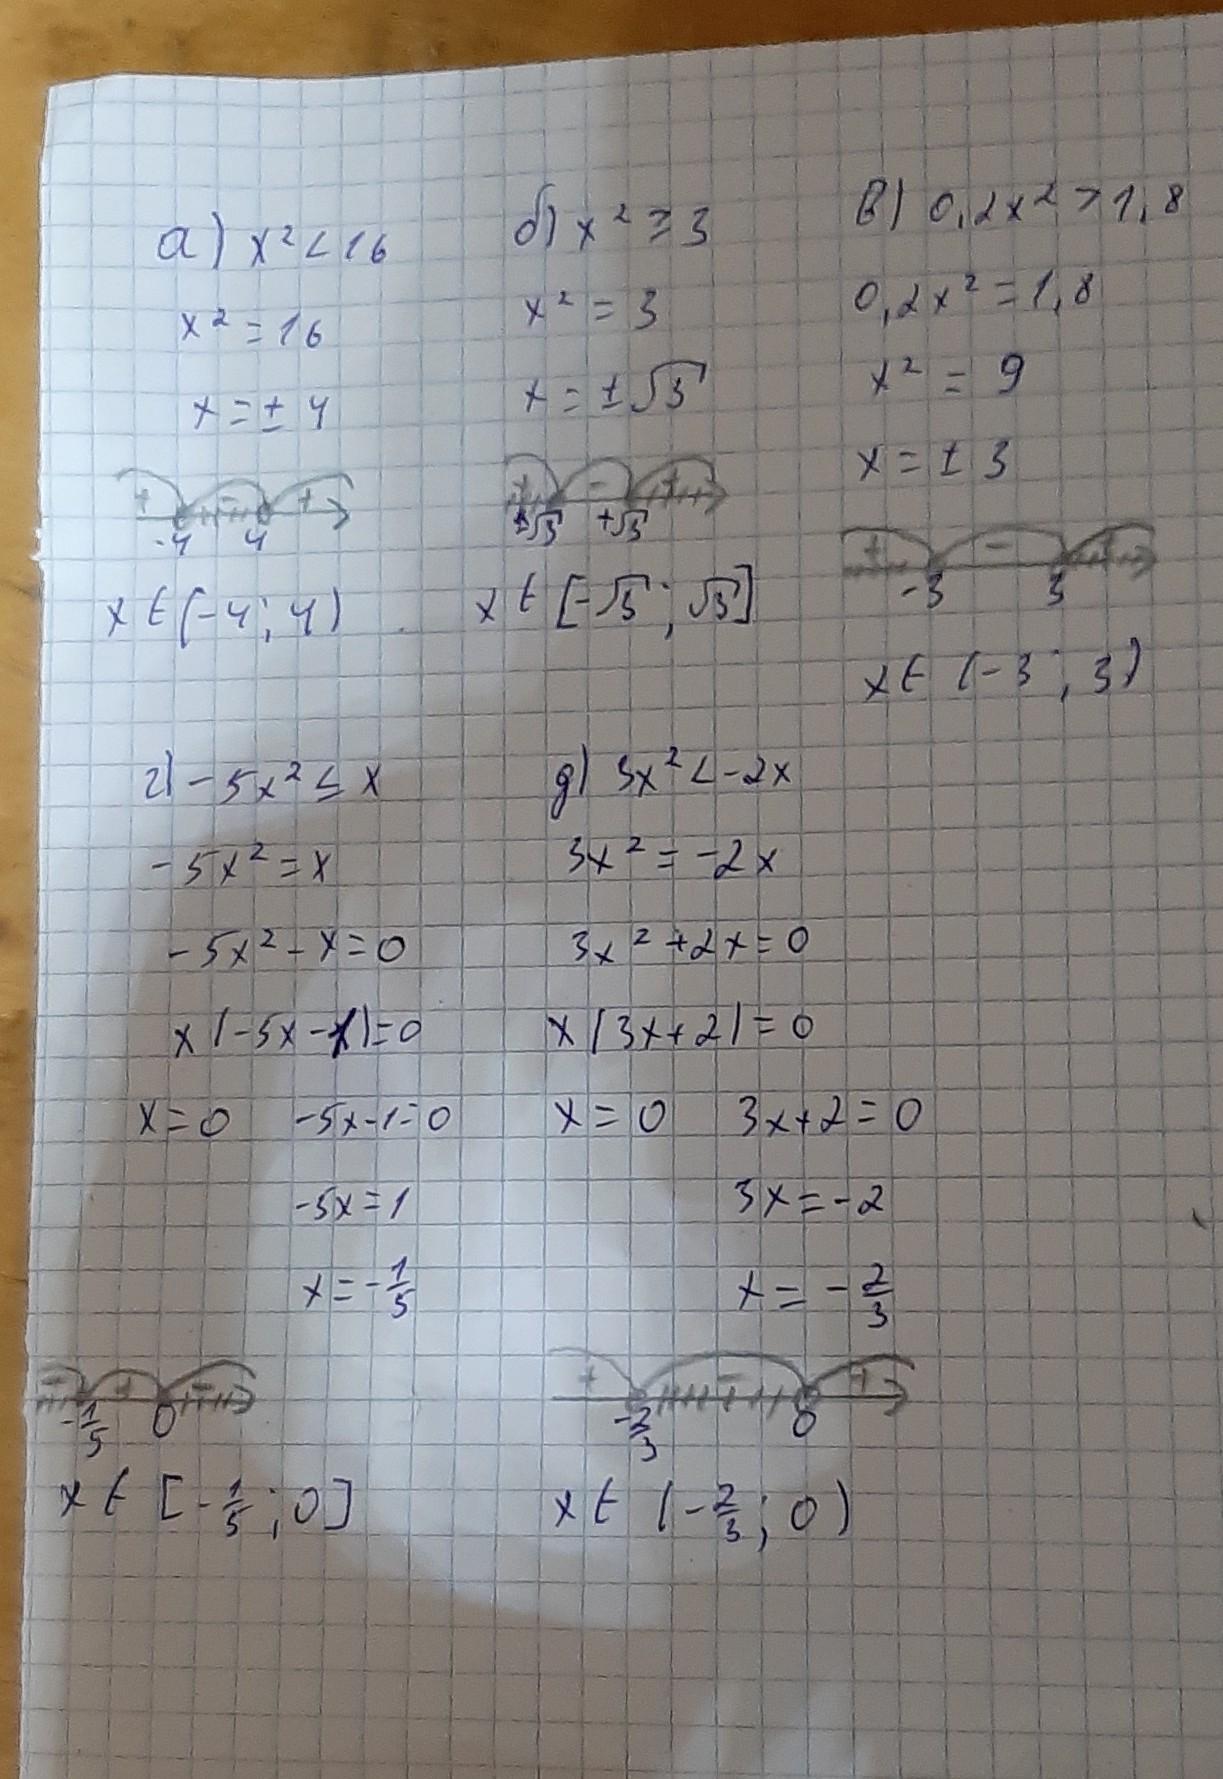 а) x² < 16
x² = 16
x = ± 4
+ - +
-4 4
x ∈ (-4; 4)
б) x² ≥ 3
x² = 3
x = ± √3
+ - +
-√3 +√3
x ∈ [-√3; √3]
в) 0,2x² > 1,8
0,2x² = 1,8
x² = 9
x = ± 3
+ - +
-3 3
x ∈ (-3; 3)
г) -5x² ≤ x
-5x² = x
-5x² - x = 0
x(-5x-1)=0
x = 0 -5x-1=0
-5x = 1
x = -1/5
- + -
-1/5 0
x ∈ [-1/5; 0]
д) 3x² < -2x
3x² = -2x
3x² + 2x = 0
x(3x+2) = 0
x = 0 3x+2 = 0
3x = -2
x = -2/3
+ - +
-2/3 0
x ∈ (-2/3; 0)